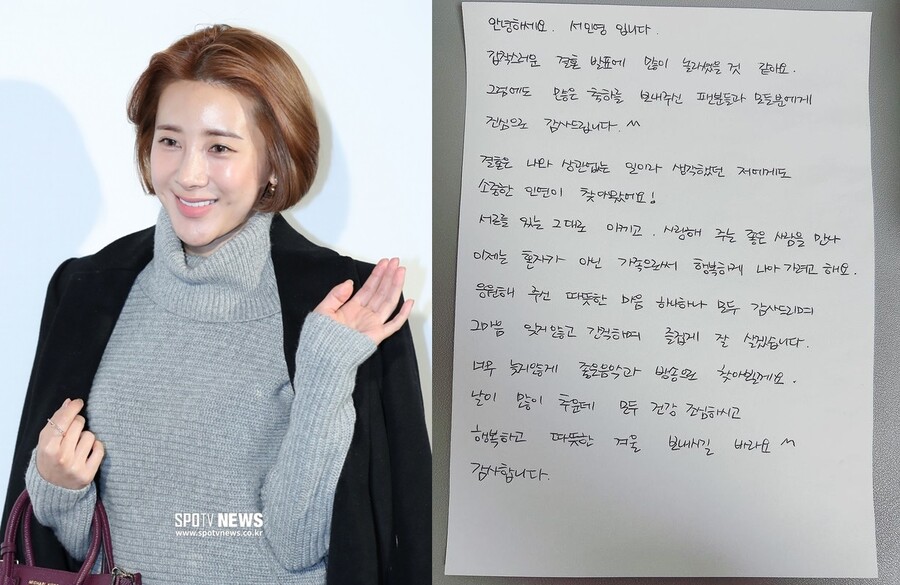 안녕하세요. 서인영 입니다.
갑작스러운 결혼 발표에 많이 놀라셨을 것 같아요.
그럼에도 많은 축하를 보내주신 팬분들과 모든분에게
진심으로 감사드립니다. ^^
결혼은 나와 상관없는 일이라 생각했던 저에게도
소중한 인연이 찾아왔어요!
서로를 있는 그대로 아끼고. 사랑해 주는 좋은 사람을 만나
이제는 혼자가 아닌 가족으로서 행복하게 나아 가려고 해요.
응원해 주신 따뜻한 마음 하나하나 모두 감사드리며
그마음 잊지않고 간직하며 즐겁게 잘 살겠습니다.
너무 늦지않게 좋은음악과 방송으로 찾아뵐께요.
날이 많이 추운데 모두 건강 조심하시고
행복하고 따뜻한 겨울 보내시길 바라요 ^^
감사합니다.
SPOTV NEWS
www.spotvnews.co.kr
MICHAEL KORS